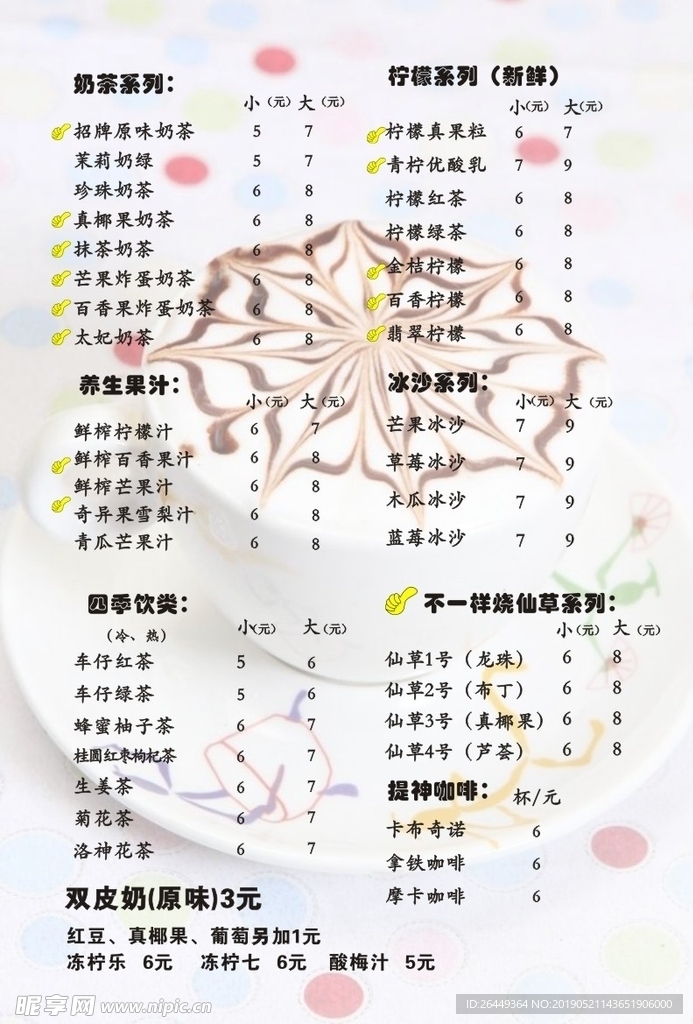 奶茶系列：
小（元） 大（元）
招牌原味奶茶 5 7
茉莉奶绿 5 7
珍珠奶茶 6 8
真椰果奶茶 6 8
抹茶奶茶 6 8
芒果炸蛋奶茶 6 8
百香果炸蛋奶茶 6 8
太妃奶茶 6 8
养生果汁：
小（元） 大（元）
鲜榨柠檬汁 6 7
鲜榨百香果汁 6 8
鲜榨芒果汁 6 8
奇异果雪梨汁 6 8
青瓜芒果汁 6 8
四季饮类：
（冷、热） 小（元） 大（元）
车仔红茶 5 6
车仔绿茶 5 6
蜂蜜柚子茶 6 7
桂圆红枣枸杞茶 6 7
生姜茶 6 7
菊花茶 6 7
洛神花茶 6 7
柠檬系列（新鲜）
小（元） 大（元）
柠檬真果粒 6 7
青柠优酸乳 7 9
柠檬红茶 6 8
柠檬绿茶 6 8
金桔柠檬 6 8
百香柠檬 6 8
翡翠柠檬 6 8
冰沙系列：
小（元） 大（元）
芒果冰沙 7 9
草莓冰沙 7 9
木瓜冰沙 7 9
蓝莓冰沙 7 9
不一样烧仙草系列：
小（元） 大（元）
仙草1号（龙珠） 6 8
仙草2号（布丁） 6 8
仙草3号（真椰果） 6 8
仙草4号（芦荟） 6 8
提神咖啡： 杯/元
卡布奇诺 6
拿铁咖啡 6
摩卡咖啡 6
双皮奶(原味)3元
红豆、真椰果、葡萄另加1元
冻柠乐 6元 冻柠七 6元 酸梅汁 5元
昵享网 www.nipic.cn
ID:26449364 NO:20190521143651906000